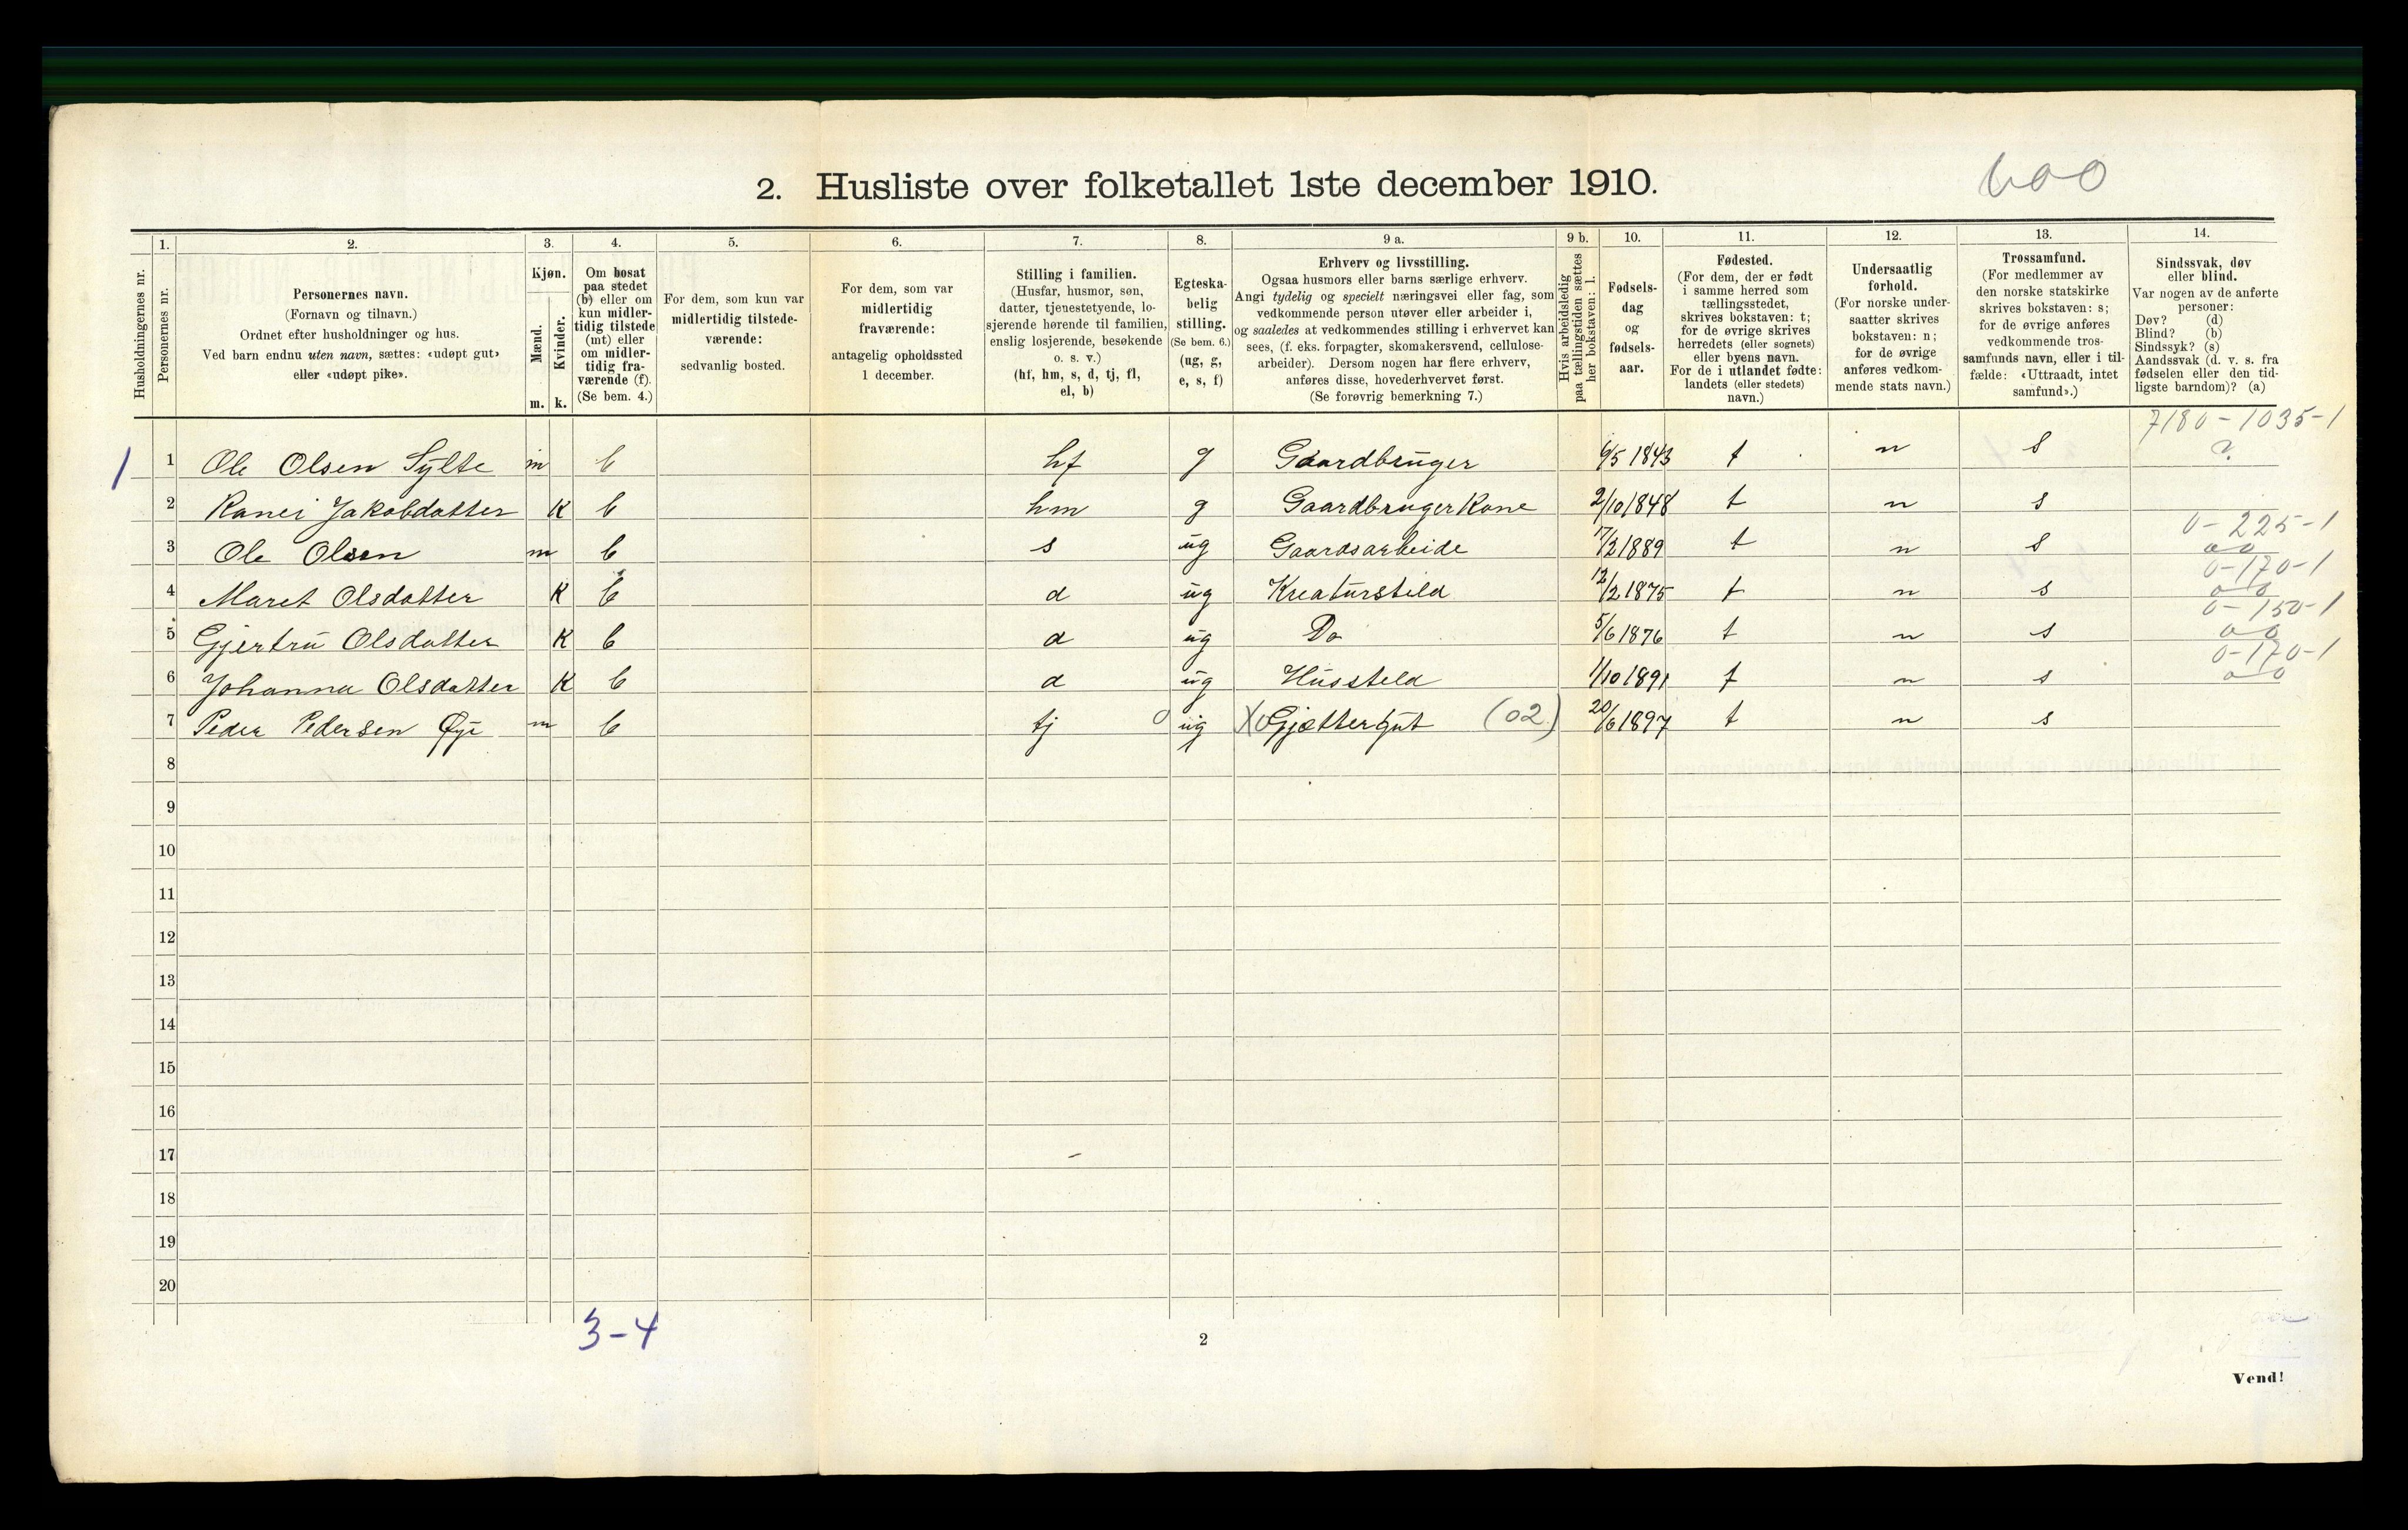 2. Husliste over folketallet 1ste december 1910.
600
1. 2. 3. 4. 5. 6. 7. 8. 9 a. 9 b. 10. 11. 12. 13. 14.
Husholdningernes nr.
Personernes nr.
Personernes navn.
(Fornavn og tilnavn.)
Ordnet efter husholdninger og hus.
Ved barn endnu uten navn, sættes: «udøpt gut»
eller «udøpt pike».
Kjøn.
Mænd.
Kvinder.
m. k.
Om bosat
paa stedet
(b) eller om
kun midler-
tidig tilstede
(mt) eller
om midler-
tidig fra-
værende (f).
(Se bem. 4.)
For dem, som kun var
midlertidig tilstede-
værende:
sedvanlig bosted.
For dem, som var
midlertidig
fraværende:
antagelig opholdssted
1 december.
Stilling i familien.
(Husfar, husmor, søn,
datter, tjenestetyende, lo-
sjerende hørende til familien,
enslig losjerende, besøkende
o. s. v.)
(hf, hm, s, d, tj, fl,
el, b)
Egteska-
belig
stilling.
(Se bem. 6.)
(ug, g,
e, s, f)
Erhverv og livsstilling.
Ogsaa husmors eller barns særlige erhverv.
Angi tydelig og specielt næringsvei eller fag, som
vedkommende person utøver eller arbeider i,
og saaledes at vedkommendes stilling i erhvervet kan
sees, (f. eks. forpagter, skomakersvend, cellulose-
arbeider). Dersom nogen har flere erhverv,
anføres disse, hovederhvervet først.
(Se forøvrig bemerkning 7.)
Hvis arbeidsledig
paa tællingstiden sættes
her bokstaven: l.
Fødsels-
dag
og
fødsels-
aar.
Fødested.
(For dem, der er født
i samme herred som
tællingsstedet,
skrives bokstaven: t;
for de øvrige skrives
herredets (eller sognets)
eller byens navn.
For de i utlandet fødte:
landets (eller stedets)
navn.)
Undersaatlig
forhold.
(For norske under-
saatter skrives
bokstaven: n;
for de øvrige
anføres vedkom-
mende stats navn.)
Trossamfund.
(For medlemmer av
den norske statskirke
skrives bokstaven: s;
for de øvrige anføres
vedkommende tros-
samfunds navn, eller i til-
fælde: «Uttraadt, intet
samfund».)
Sindssvak, døv
eller blind.
Var nogen av de anførte
personer:
Døv? (d)
Blind? (b)
Sindssyk? (s)
Aandssvak (d. v. s. fra
fødselen eller den tid-
ligste barndom)? (a)
7180-1035-1
1 1 Ole Olsen Sylte m b hf g Gaardbruger 6/5 1843 t n s
2 Ranei Jakobdatter K b hm g Gaardbruger Kone 2/10 1848 t n s
0-225-1
3 Ole Olsen m b s ug Gaardsarbeide 17/2 1889 t n s 00
0-170-1
4 Maret Olsdatter K b d ug Kreatursteld 12/2 1875 t n s 00
0-150-1
5 Gjertru Olsdatter K b d ug Do 5/6 1876 t n s 00
0-170-1
6 Johanna Olsdatter K b d ug Hussteld 1/10 1891 t n s 00
7 Peder Pedersen Øye m b tj 0 ug Gjættergut (02) 20/6 1897 t n s
8
9
10
11
12
13
14
15
16
17
18
19
20
3-4
2
Vend!